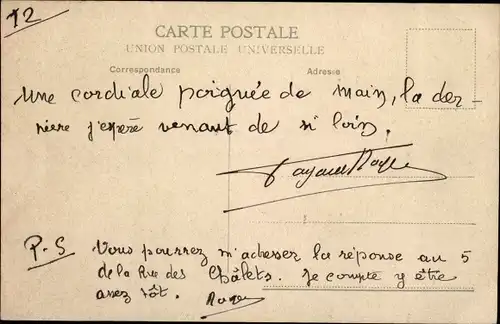 12
CARTE POSTALE
UNION POSTALE UNIVERSELLE
Correspondance Adresse
une cordiale poignée de main, la der-
nière j'espère venant de si loin.
P.S Vous pourrez m'adresser la réponse au 5
de la Rue des Châlets. Je compte y être
assez tôt.